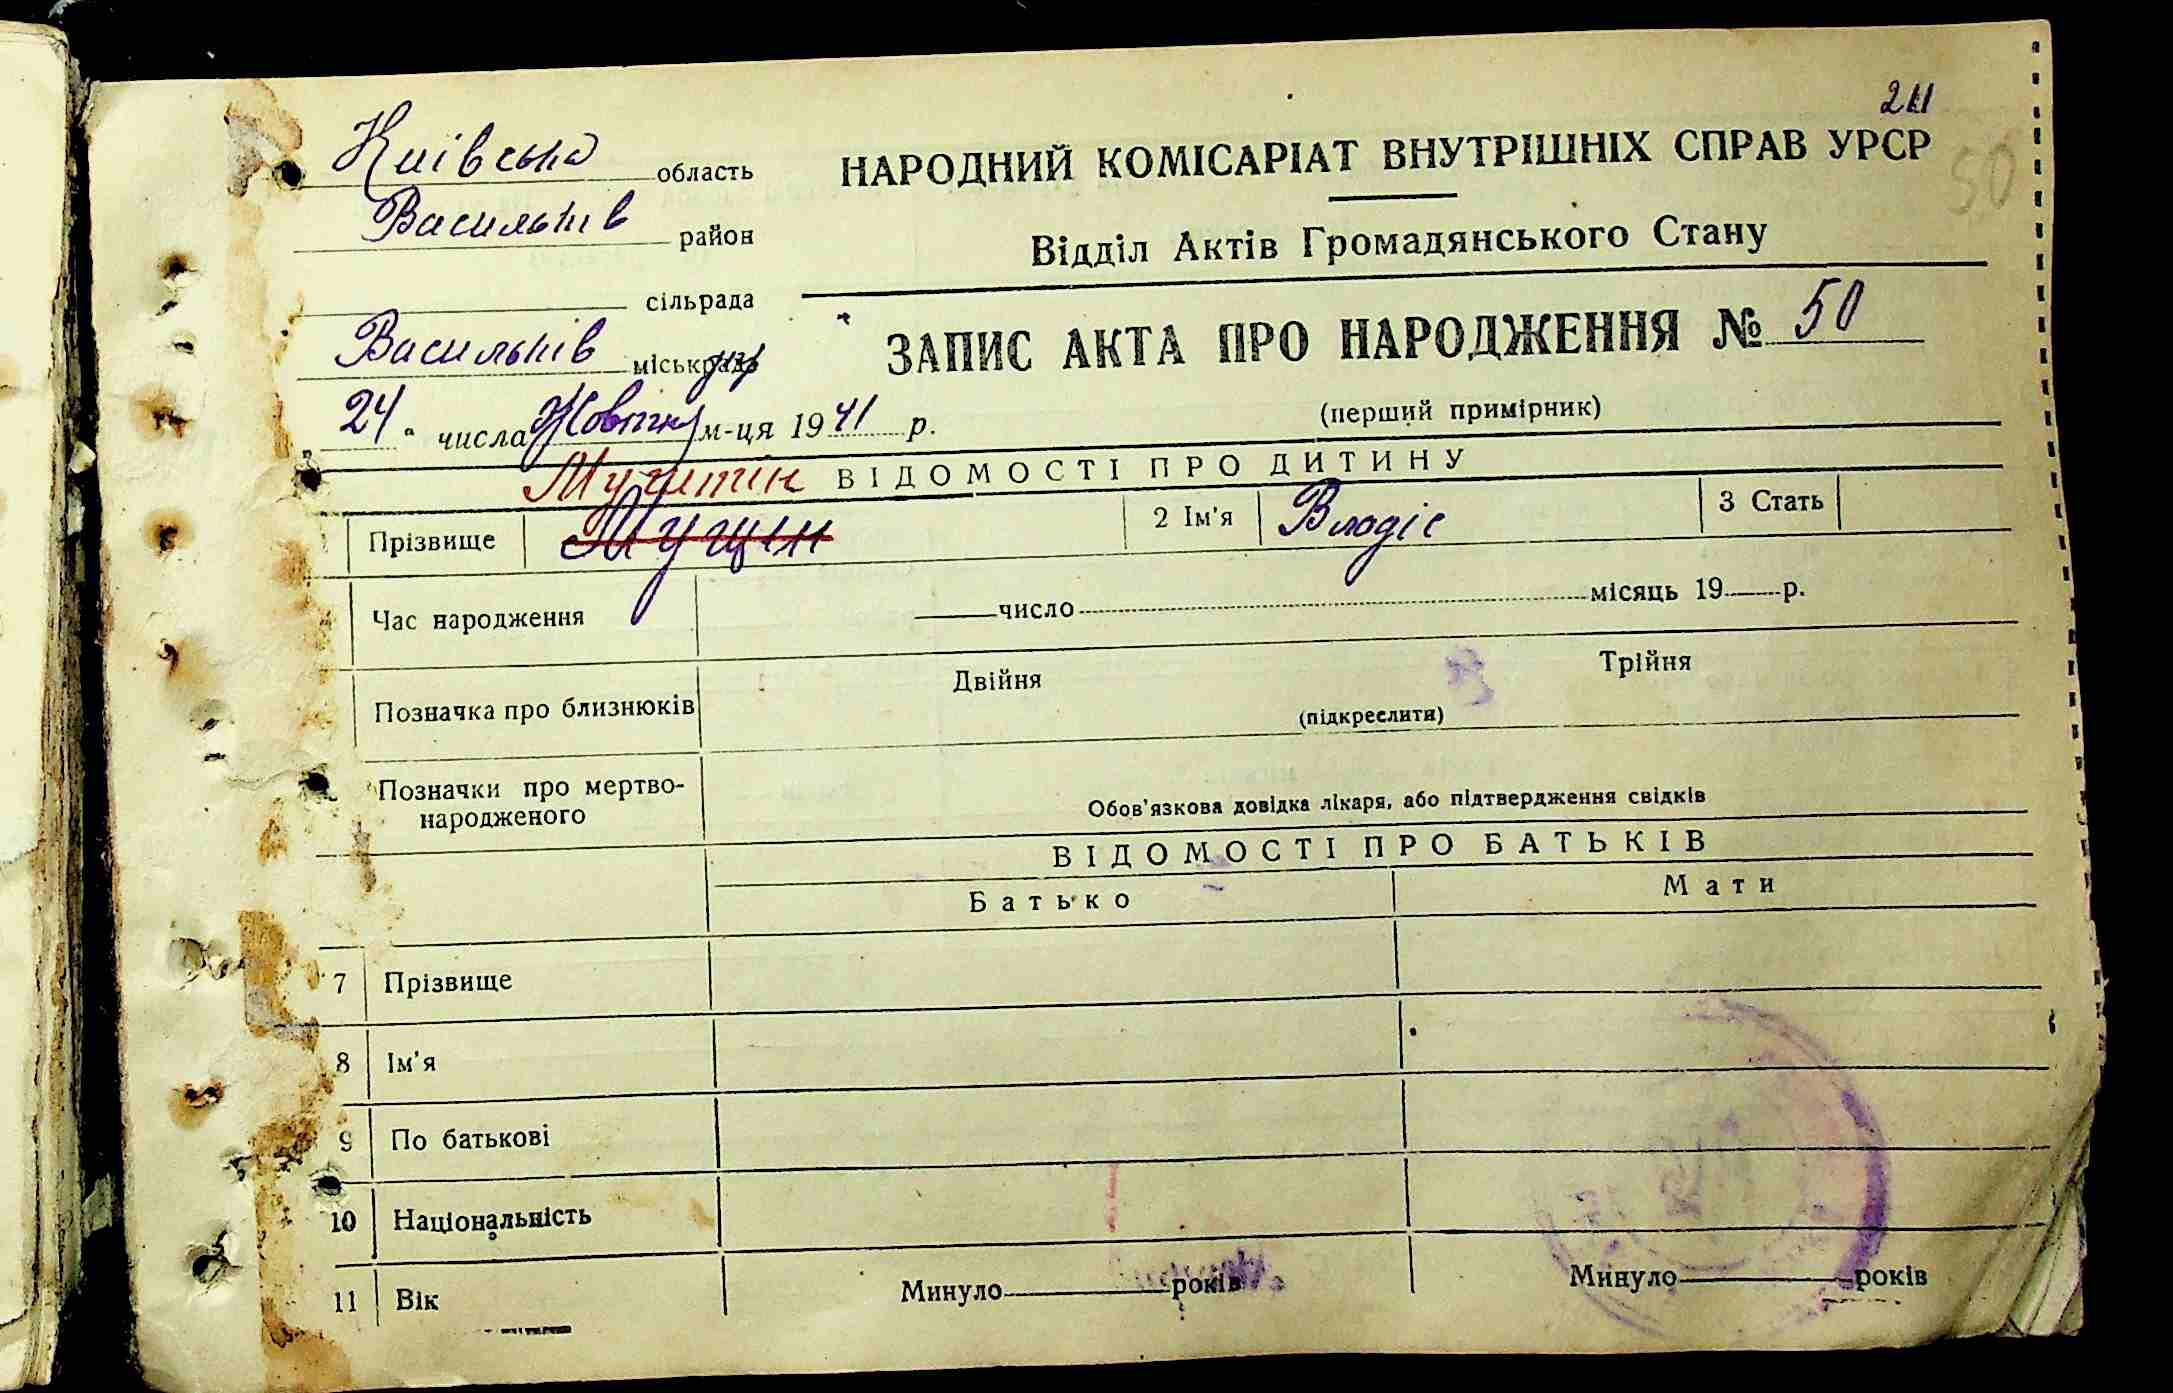 211
Київська область
НАРОДНИЙ КОМІСАРІАТ ВНУТРІШНІХ СПРАВ УРСР
50
Васильків район
Відділ Актів Громадянського Стану
сільрада
Васильків міськ
ЗАПИС АКТА ПРО НАРОДЖЕННЯ № 50
24 " числа Жовтня м-ця 1941 р.
(перший примірник)
ВІДОМОСТІ ПРО ДИТИНУ
Прізвище
2 Ім'я
3 Стать
Час народження число місяць 19 р.
Позначка про близнюків Двійня Трійня
(підкреслити)
Позначки про мертво-
народженого
Обов'язкова довідка лікаря, або підтвердження свідків
ВІДОМОСТІ ПРО БАТЬКІВ
Батько Мати
7 Прізвище
8 Ім'я
9 По батькові
10 Національність
11 Вік Минуло років Минуло років